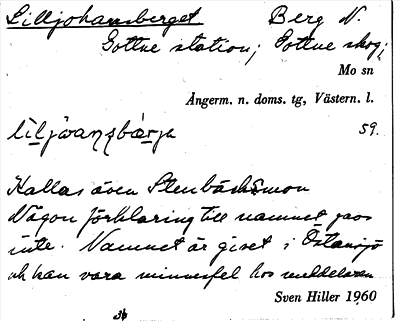 Lilljohansberget Berg N.
Gottne station; Gottne skog;
Mo sn
Ångerm. n. doms. tg, Västern. l.
59.
Kallas även Stenbäcksmon
Någon förklaring till namnet gavs
inte. Namnet är givet i Östansjö
och kan vara minnesfel hos meddelaren
Sven Hiller 1960